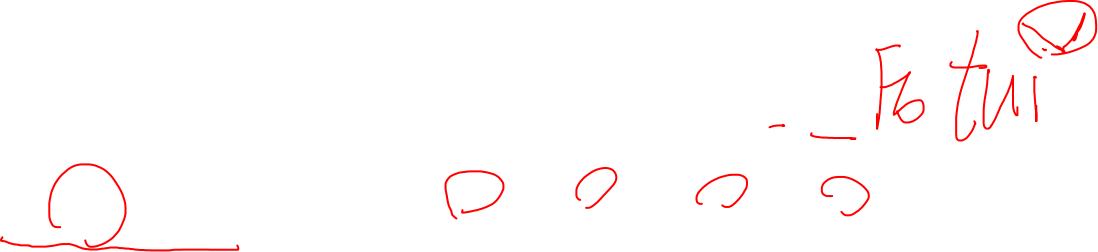 Fo tui